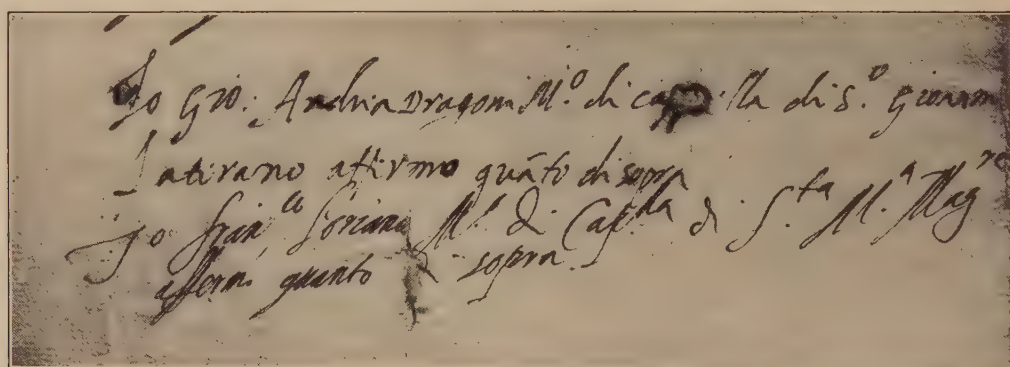 Io Gio: Andrea Dragoni M.º di cappella di S.º Giovanni
Laterano affermo quãto di sopra
Io Fran.co Soriano M.º di Cap.lla di S.ta M.ª Mag.re
affermo quanto di sopra.